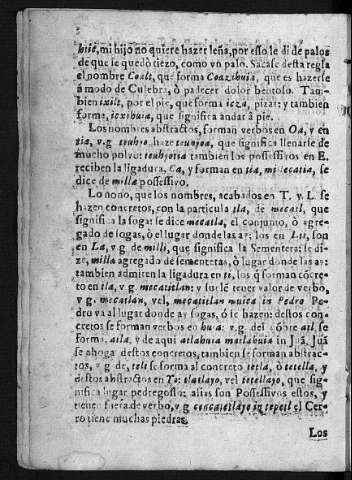 hisè, mi hijo no quiere hazer leña, por esso le di de palos
de que se quedò tiezo, como vn palo. Sacase desta regla
el nombre Coatl, que forma Coazihuia, que es hazerse
à modo de Culebra, ò padecer dolor bentoso. Tam-
bien icxitl, por el pie, que forma icza, pizar: y tambien
forma, icxihuia, que significa andar à pie.
Los nombres abstractos, forman verbos en Oa, y en
tia, v.g. teuhyo haze teuhyoa, que significa llenarse de
mucho polvo: teuhyotia tambien los possessivos en E.
reciben la ligadura, Ca, y forman en tia, milecatia, se
dice de mille possessivo.
Lo nono, que los nombres, acabados en T. y L. se
hazen concretos, con la particula tla, de mecatl, que
significa la soga: se dice mecatla, el conjunto, ò agre-
gado de sogas, ò el lugar donde las ay: los en Lli, son
en La, v g. de milli, que significa la Sementera: se di-
ze, milla agregado de sementeras, ò lugar donde las ay:
tambien admiten la ligadura en ti, los q̃ forman cõcre-
to en tla, v g. mecatitlan: y suele tener valor de verbo,
v g. mecatlan, vel, mecatitlan muica in Pedro Pe-
dro va al lugar donde ay sogas, ò se hazen: destos con-
cretos se forman verbos en hua: v g. del nõbre atl se
forma, atla, y de aqui atlahuia matlahuia in Juã, Juã
se ahoga destos concretos, tambien se forman abstrac-
tos, v g. de, tetl se forma al concreto tetla, ò tetella, y
destos abstractos en Yo: tlatlayo, vel tetellayo, que sig-
nifica lugar pedregoso: alias son Possessivos estos, y
tienen fuera de verbo, v g. cencatetlayo in tepetl el Cer-
ro tiene muchas piedras.
Los